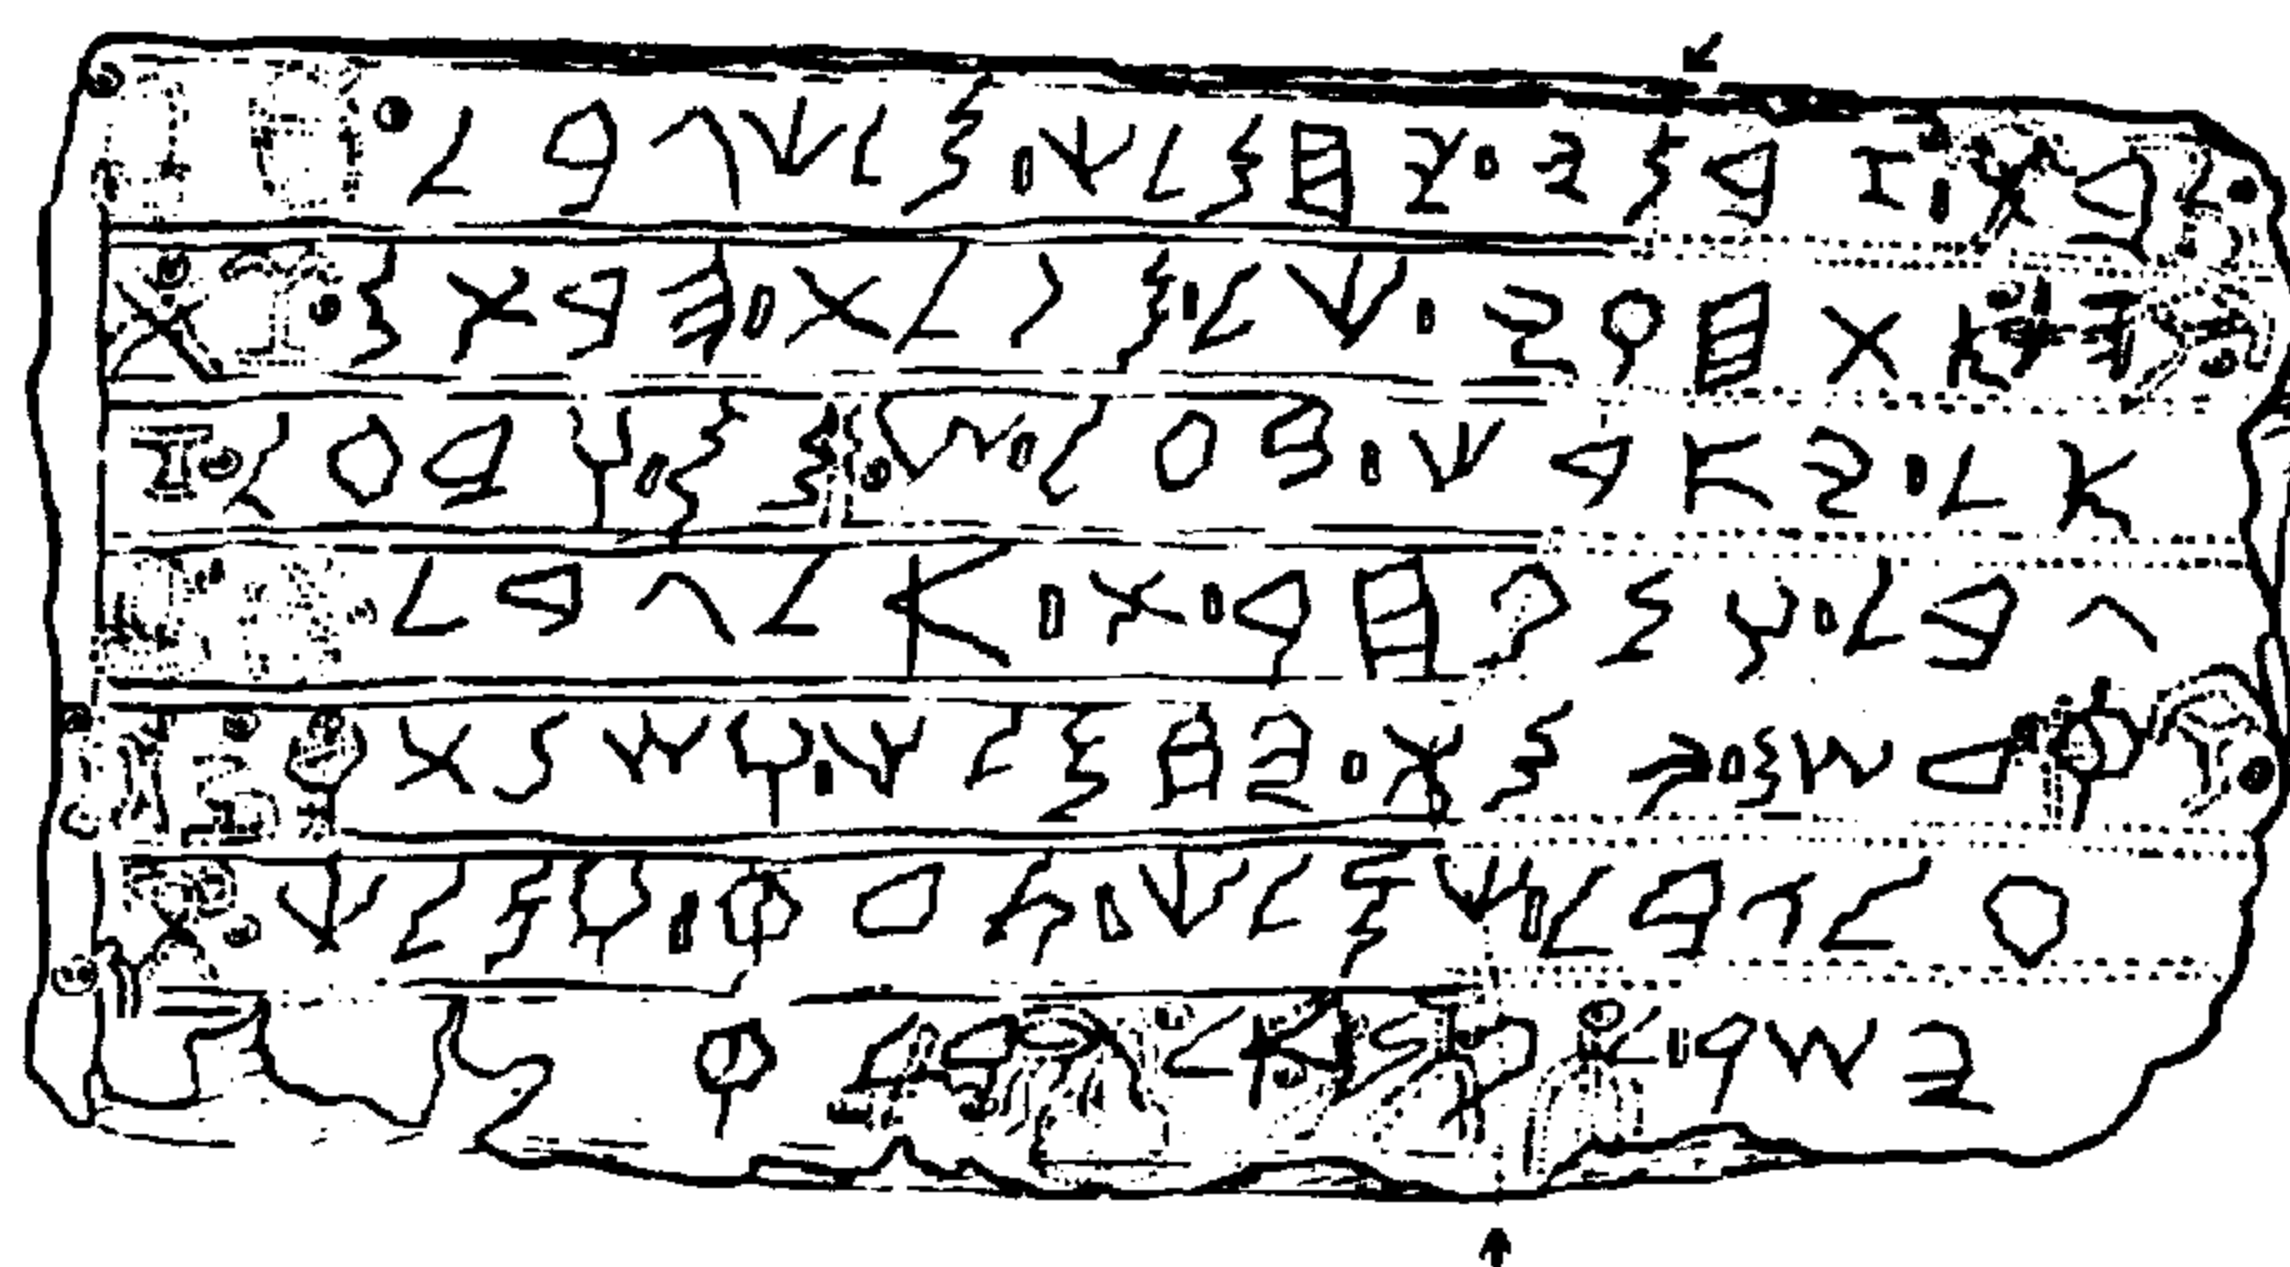 𐤁𐤕·𐤆 𐤁𐤍𐤉·𐤉𐤇𐤌𐤋𐤊·𐤌𐤋𐤊 𐤂𐤁𐤋
𐤄𐤀𐤕 𐤇𐤅𐤉·𐤊𐤋·𐤌𐤐𐤋𐤕·𐤄𐤁𐤕𐤌
𐤀𐤋·𐤉𐤀𐤓𐤊·𐤁𐤏𐤋·𐤔𐤌𐤌·𐤅𐤁𐤏𐤋
𐤂𐤁𐤋·𐤅𐤌𐤐𐤇𐤓·𐤕·𐤀𐤋 𐤂𐤁𐤋
𐤒𐤃𐤔𐤌·𐤉𐤌𐤕·𐤉𐤇𐤌𐤋𐤊·𐤅𐤔𐤍𐤕𐤅
𐤏𐤋 𐤂𐤁𐤋·𐤊𐤌𐤋𐤊·𐤑𐤃𐤒·𐤅𐤌𐤋𐤊
𐤉𐤔𐤓·𐤋𐤐𐤍 𐤀𐤋 𐤂𐤁𐤋 𐤒